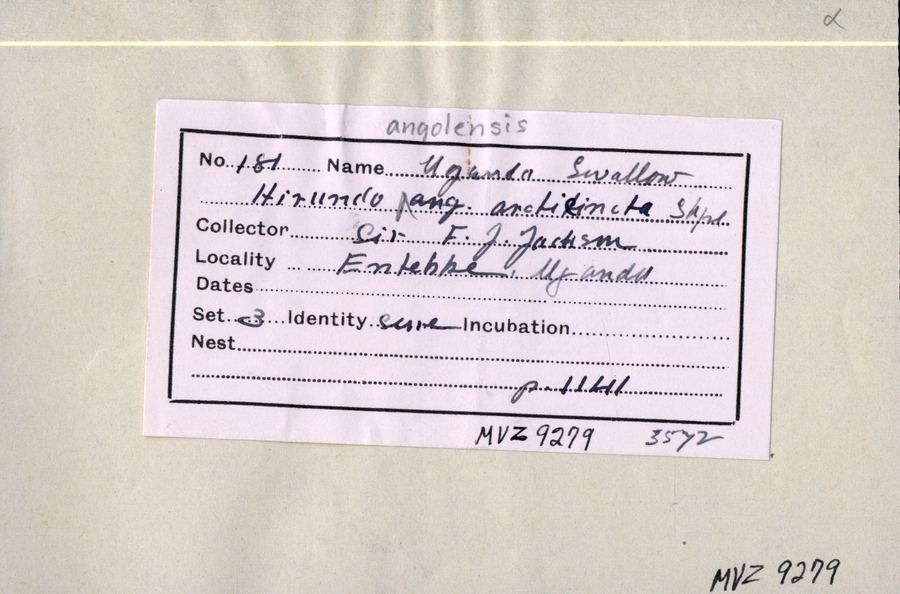 α
angolensis
No. 181 Name Uganda Swallow
Hirundo ang. arctitincta Shpe.
Collector Sir F. J. Jackson
Locality Entebbe, Uganda
Dates
Set 3 Identity sure Incubation
Nest
p. 1141
MVZ 9279 3572
MVZ 9279